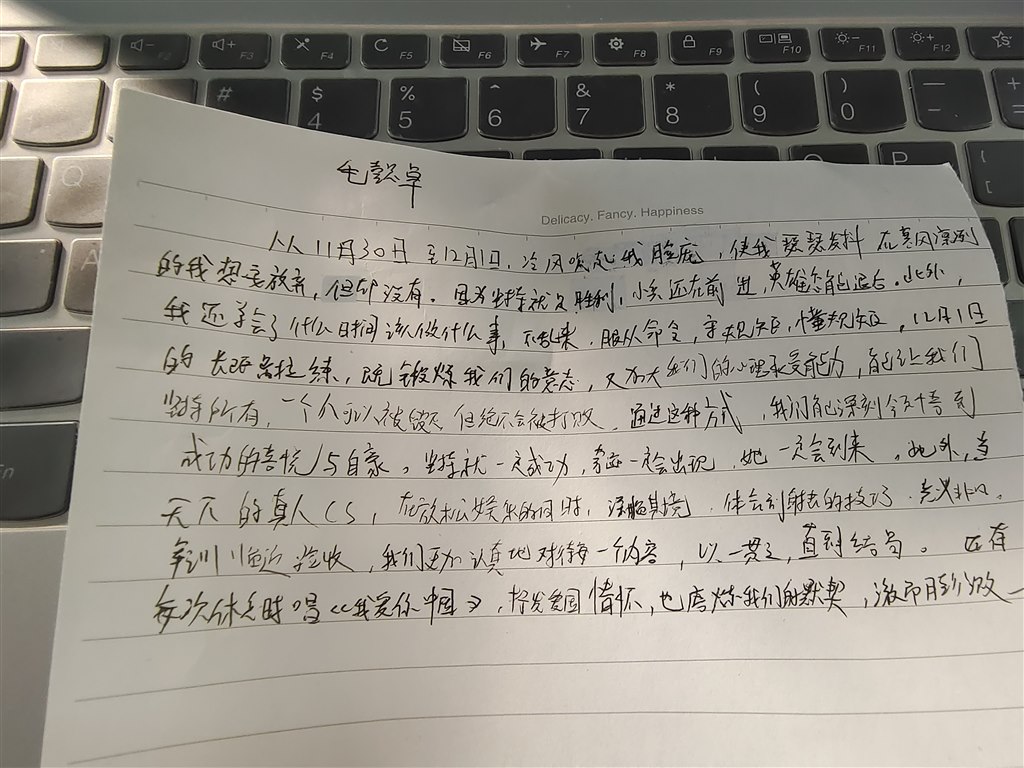 F4
F5
F6
F7
F8
F9
F10
F11
F12
#
$ 4
% 5
^ 6
& 7
* 8
( 9
) 0
Q
P
毛懿卓
Delicacy. Fancy. Happiness
从11月30日至12月1日，冷风吹起我脸庞，使我瑟瑟发抖 在寒风凛冽
的我想要放弃，但却没有。因为坚持就是胜利，小兵还在前进，英雄怎能退后。此外，
我还学会了什么时间该做什么事，不乱来，服从命令，守规矩，懂规矩，12月1日
的 拉练，既锻炼我们的意志，又加大我们的心理承受能力，能让我们
坚持所有，一个人可以被毁灭 但绝不会被打败，通过这种方式，我们能深刻领悟到
成功的喜悦与自豪。坚持就一定成功，奇迹一定会出现，她一定会到来，此外，当
天下的真人CS，在放松娱乐的同时，深临其境，体会到射击的技巧，意义非凡。
军训临近验收，我们更加认真地对待每一个内容，以一贯之，直到结句。还有
每次休息时唱《我爱你中国》，抒发爱国情怀，也磨炼我们的默契，激而膨激